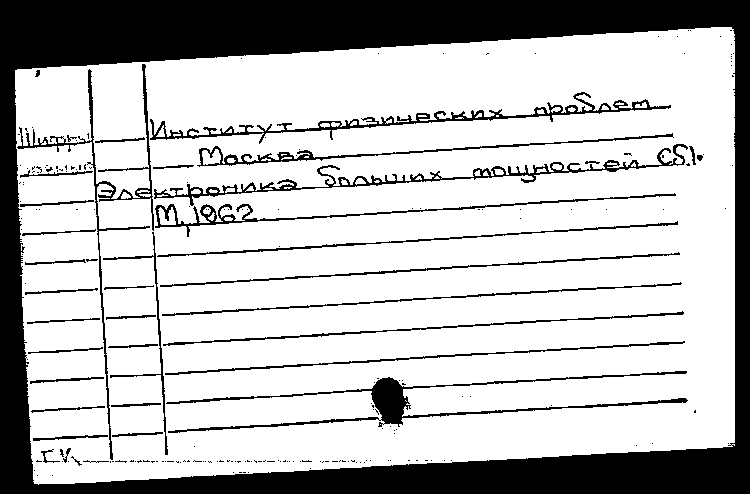 Институт физических проблем
Шифры
Москва
Электроника больших мощностей СБ1.
М, 1962
Г.К.